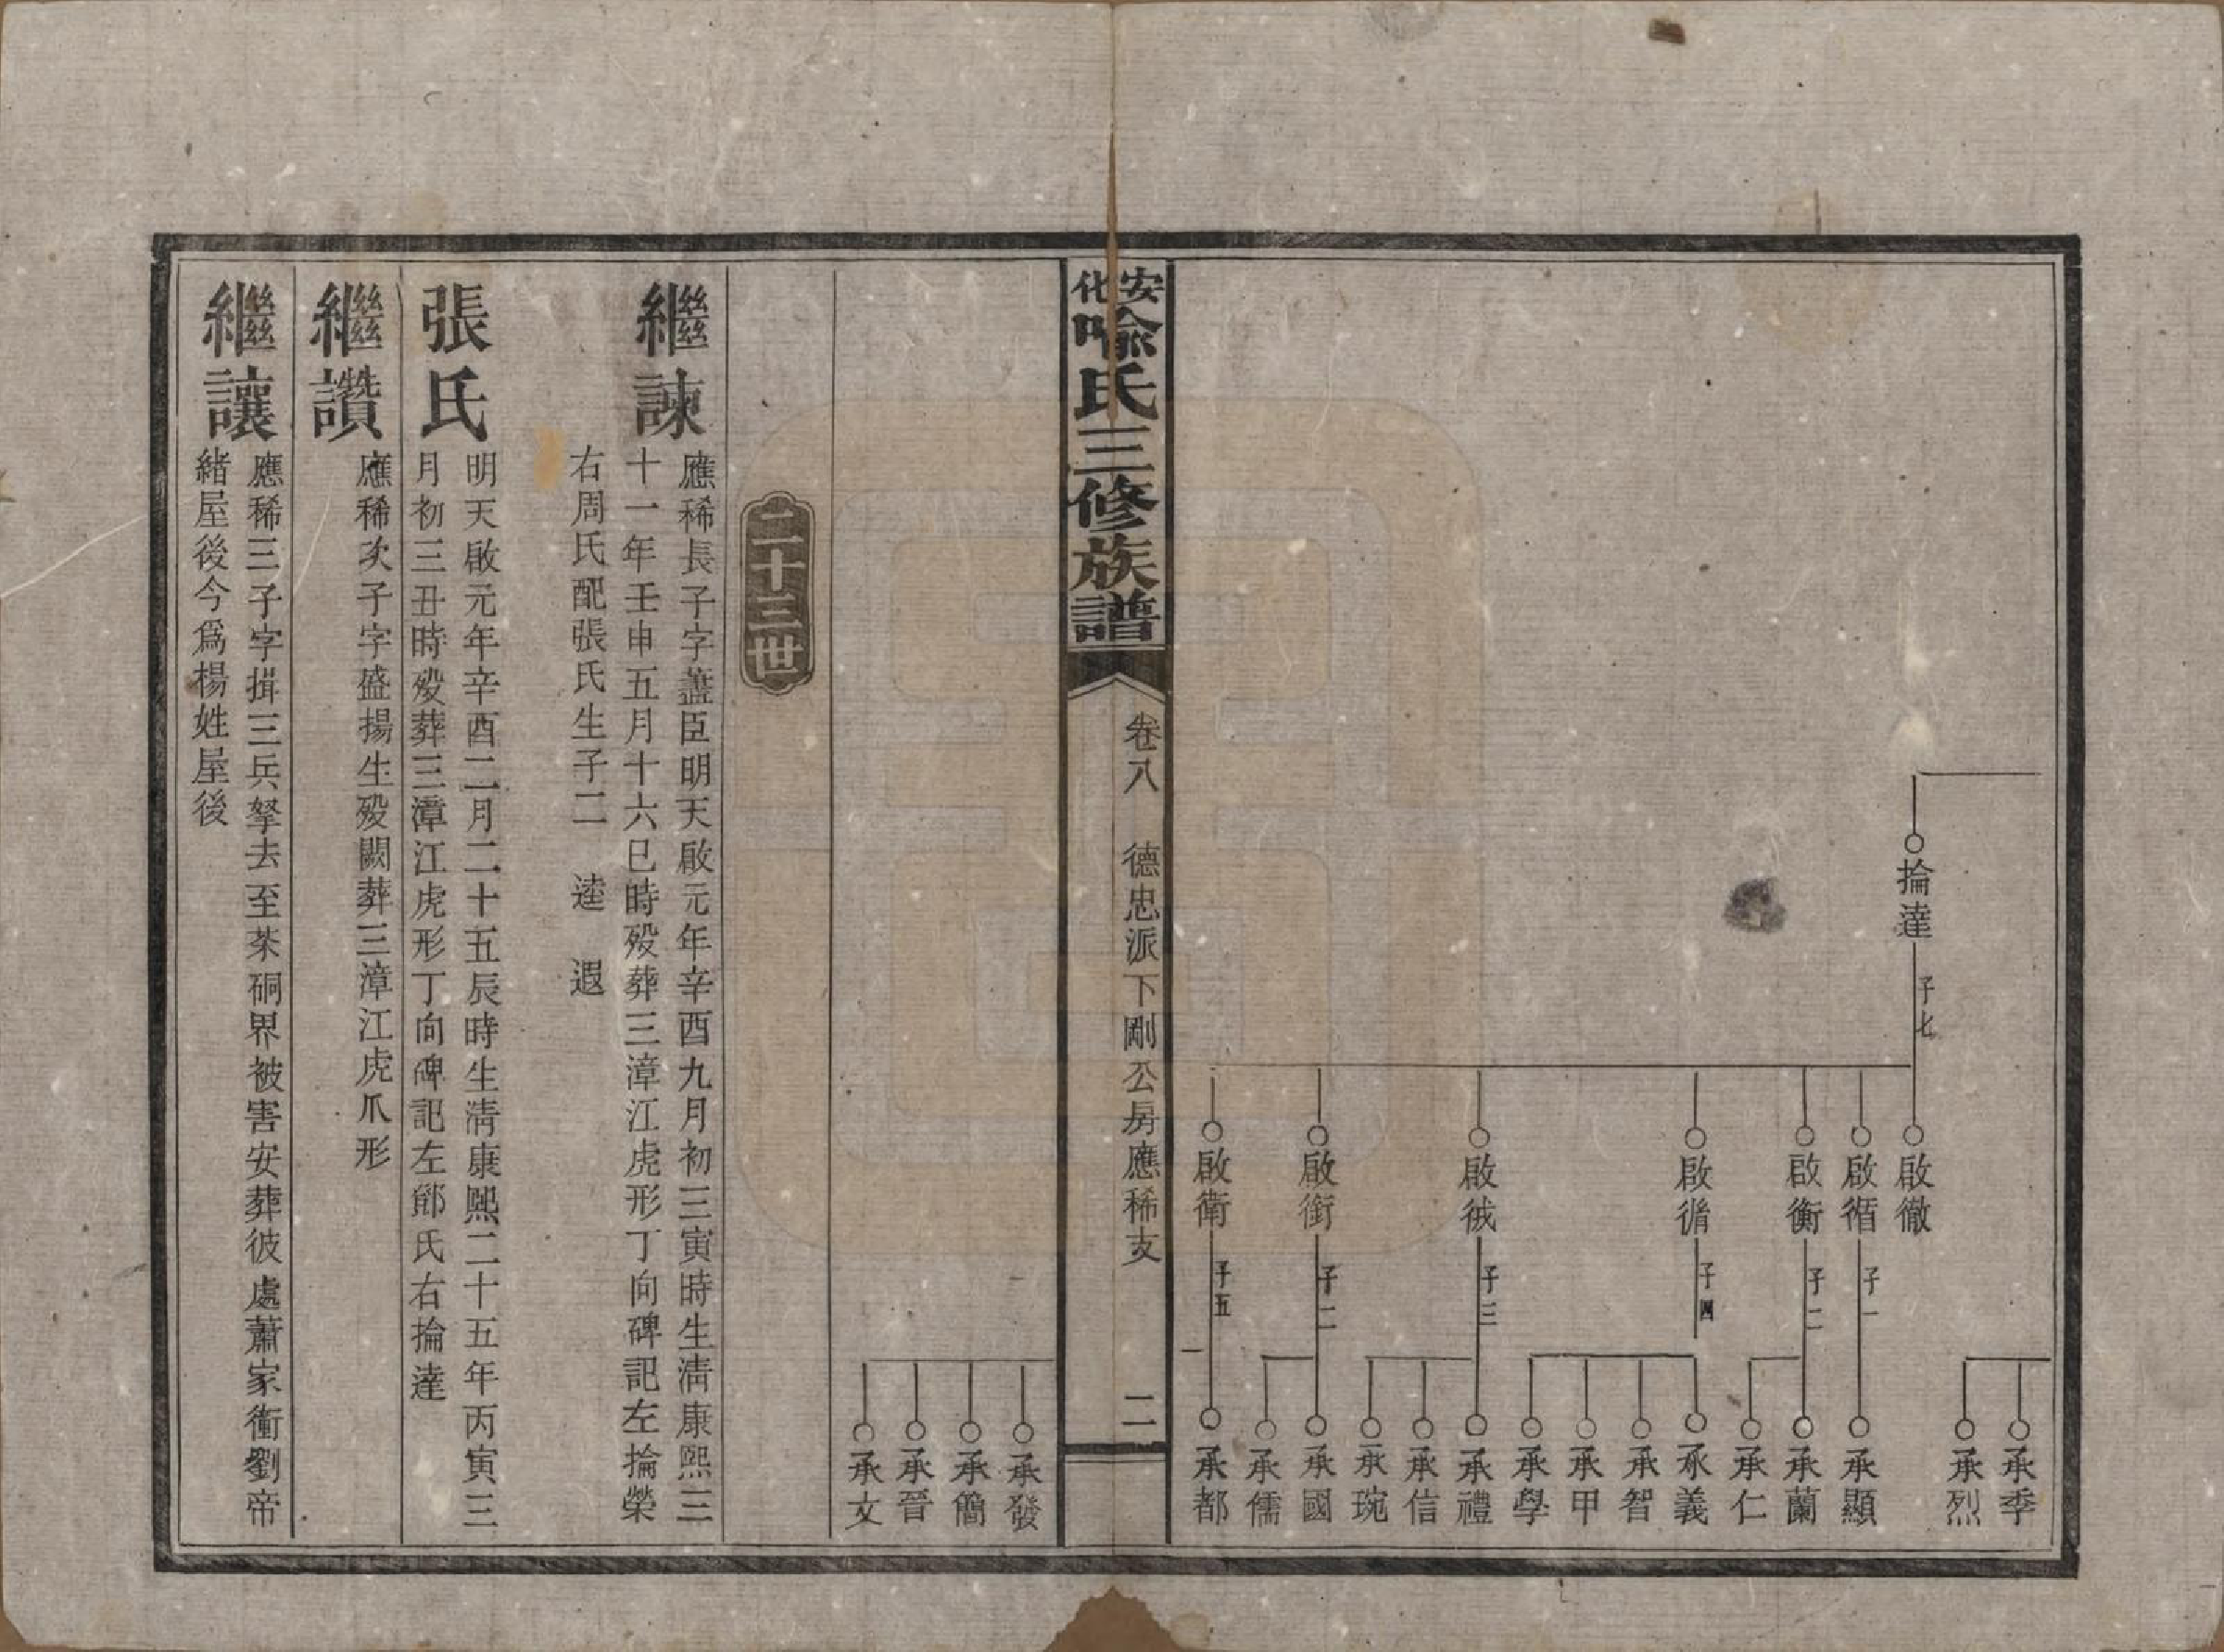 掄達 子七
啟徹
啟循 子一
啟衡 子二
啟脩 子四
啟𢓜 子三
啟銜 子二
啟衛 子五
承季
承烈
承顯
承蘭
承仁
承義
承智
承甲
承學
承禮
承信
承琬
承國
承儒
承都
安化喻氏三修族譜
卷八 德忠派下剛公房應稀支 二
承發
承簡
承晉
承文
二十三世
繼諫
應稀長子字藎臣明天啟元年辛酉九月初三寅時生淸康熙三
十一年壬申五月十六巳時歿葬三漳江虎形丁向碑記左掄榮
右周氏配張氏生子二 逵 遐
張氏
明天啟元年辛酉二月二十五辰時生淸康熙二十五年丙寅三
月初三丑時歿葬三漳江虎形丁向碑記左鄧氏右掄達
繼讚
應稀次子字盛揚生歿闕葬三漳江虎爪形
繼讓
應稀三子字揖三兵拏去至茶硐界被害安葬彼處蕭家衝劉帝
緒屋後今爲楊姓屋後